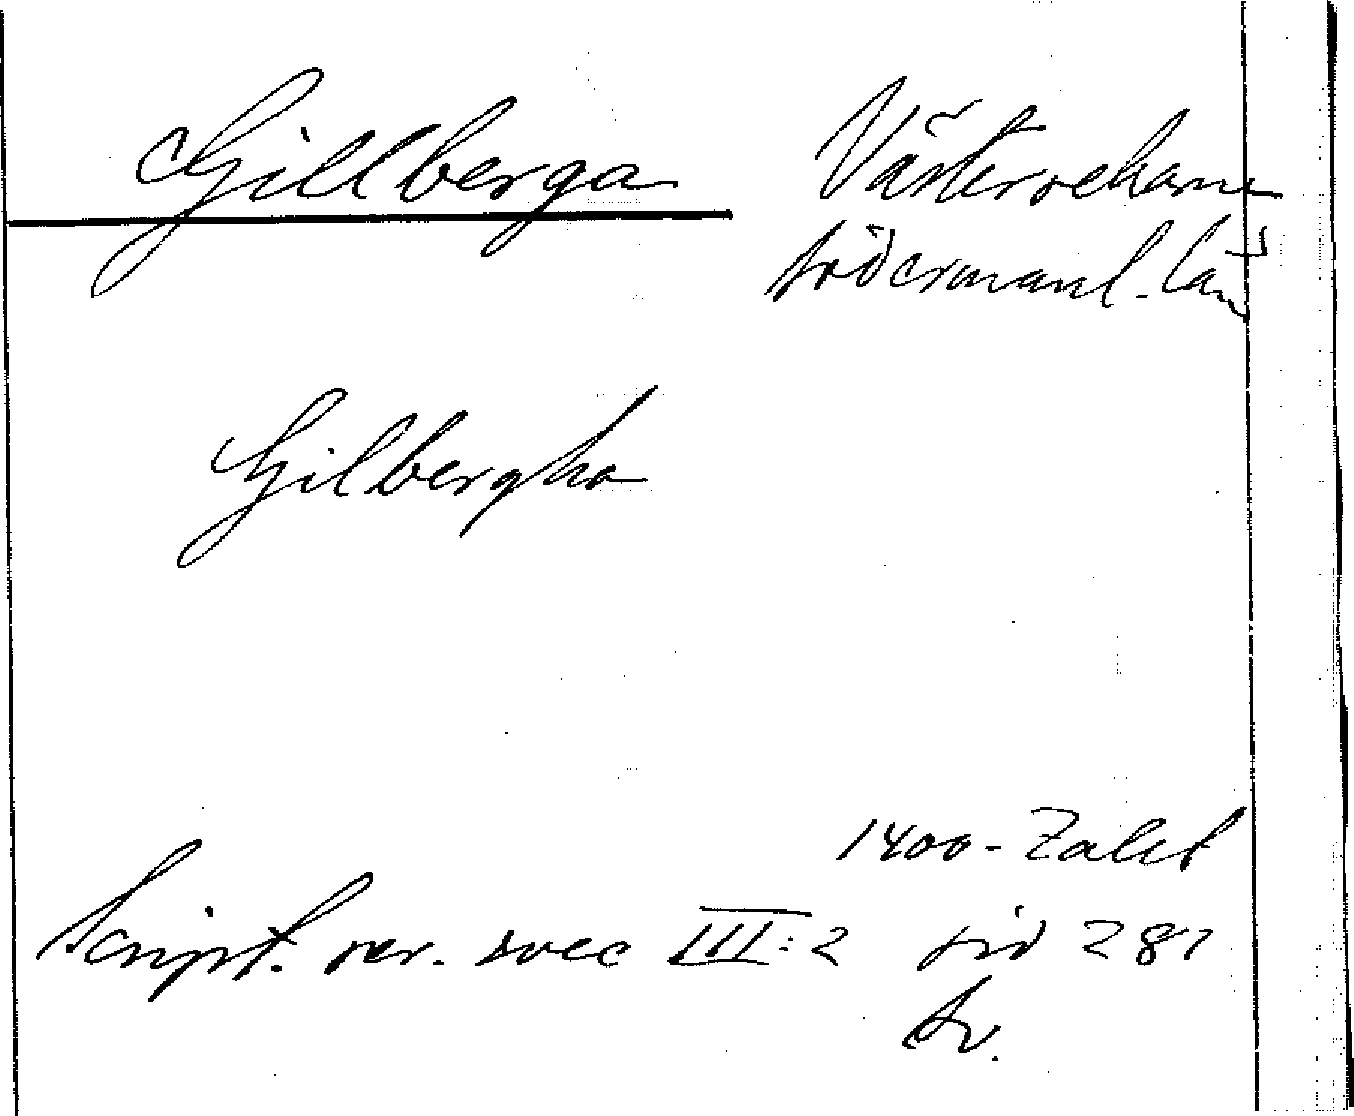 Gillberga Västerrekarne
Södermanl. län
Gilbergha
1400-talet
Script. rer. svec III:2 sid 281
Sv.